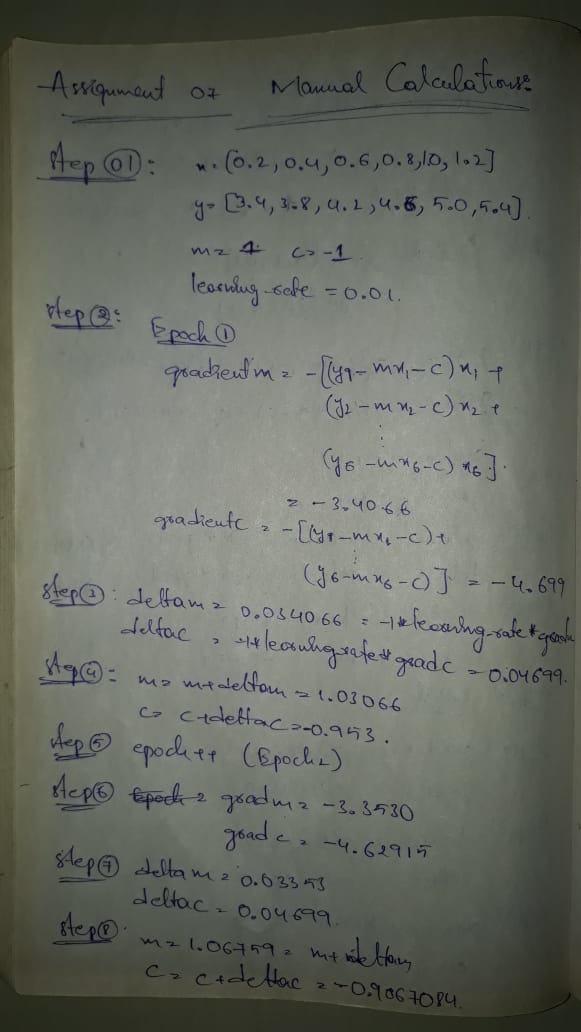 Assignment 07 Manual Calculations:
Step 01: x = [0.2, 0.4, 0.6, 0.8, 10, 1.2]
y = [3.4, 3.8, 4.2, 4.6, 5.0, 5.4]
m = 1 c = -1
learning-rate = 0.01.
Step 2:
Epoch 1
gradient m = -[(y1 - mx1 - c) x1 +
(y2 - mx2 - c) x2 +
⋮
(y6 - mx6 - c) x6].
= -3.4066
gradient c = -[(y1 - mx1 - c) +
⋮
(y6 - mx6 - c)] = -4.699
Step 3: deltam = 0.034066 = -1*learning-rate*gradm
deltac = -1*learning-rate*gradc = 0.04699.
Step 4: m = m+deltam = 1.03066
c = c+deltac = -0.953.
Step 5 epoch++ (Epoch 2)
Step 6 gradm = -3.3530
grad c = -4.62915
Step 7 delta m = 0.03353
deltac = 0.04699.
Step 8. m = 1.06759 = m+deltam
c = c+deltac = -0.9067084.